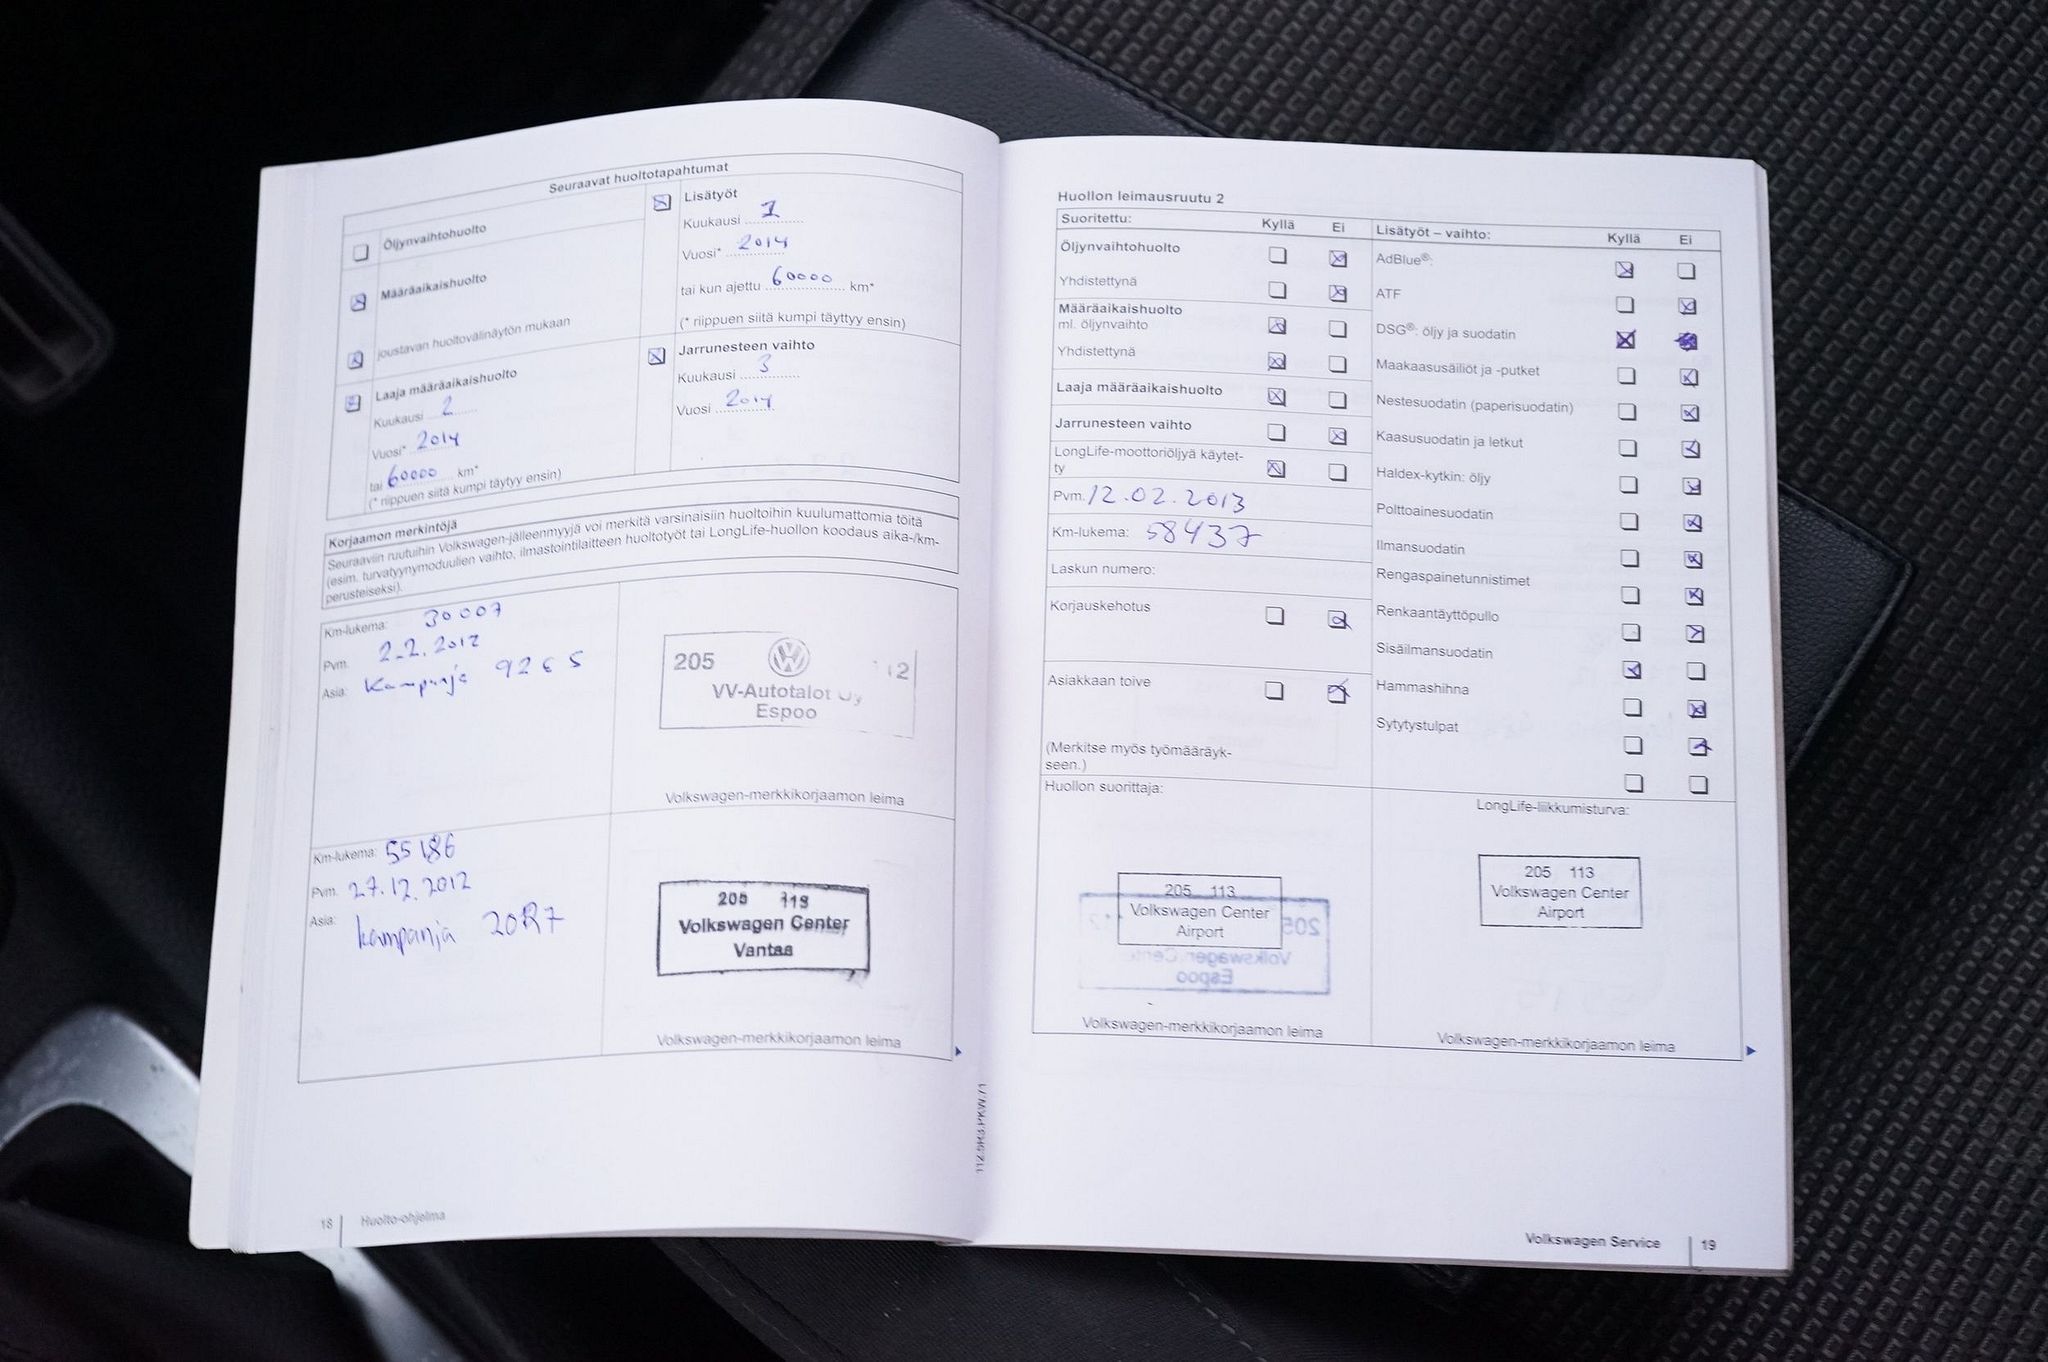 Seuraavat huoltotapahtumat
Öljynvaihtohuolto
Määräaikaishuolto
joustavan huoltovälinäytön mukaan
Laaja määräaikaishuolto
Kuukausi 2
Vuosi* 2014
tai 60000 km*
(* riippuen siitä kumpi täytyy ensin)
Lisätyöt
Kuukausi 1
Vuosi* 2014
tai kun ajettu 60000 km*
(* riippuen siitä kumpi täyttyy ensin)
Jarrunesteen vaihto
Kuukausi 3
Vuosi 2014
Korjaamon merkintöjä
Seuraaviin ruutuihin Volkswagen-jälleenmyyjä voi merkitä varsinaisiin huoltoihin kuulumattomia töitä
(esim. turvatyynymoduulien vaihto, ilmastointilaitteen huoltotyöt tai LongLife-huollon koodaus aika-/km-
perusteiseksi).
Km-lukema: 30007
Pvm. 2.2.2012
Asia: Kampanja 9265
205
VV-Autotalot Oy
Espoo
Volkswagen-merkkikorjaamon leima
Km-lukema: 55186
Pvm. 27.12.2012
Asia: kampanja 20R7
205 113
Volkswagen Center
Vantaa
Volkswagen-merkkikorjaamon leima
18 Huolto-ohjelma
112.5R3.PKW.71
Huollon leimausruutu 2
Suoritettu: Kyllä Ei
Öljynvaihtohuolto
Yhdistettynä
Määräaikaishuolto
ml. öljynvaihto
Yhdistettynä
Laaja määräaikaishuolto
Jarrunesteen vaihto
LongLife-moottoriöljyä käytet-
ty
Pvm. 12.02.2013
Km-lukema: 58437
Laskun numero:
Korjauskehotus
Asiakkaan toive
(Merkitse myös työmääräyk-
seen.)
Lisätyöt – vaihto: Kyllä Ei
AdBlue®:
ATF
DSG®: öljy ja suodatin
Maakaasusäiliöt ja -putket
Nestesuodatin (paperisuodatin)
Kaasusuodatin ja letkut
Haldex-kytkin: öljy
Polttoainesuodatin
Ilmansuodatin
Rengaspainetunnistimet
Renkaantäyttöpullo
Sisäilmansuodatin
Hammashihna
Sytytystulpat
Huollon suorittaja:
205 113
Volkswagen Center
Airport
Volkswagen-merkkikorjaamon leima
LongLife-liikkumisturva:
205 113
Volkswagen Center
Airport
Volkswagen-merkkikorjaamon leima
Volkswagen Service 19